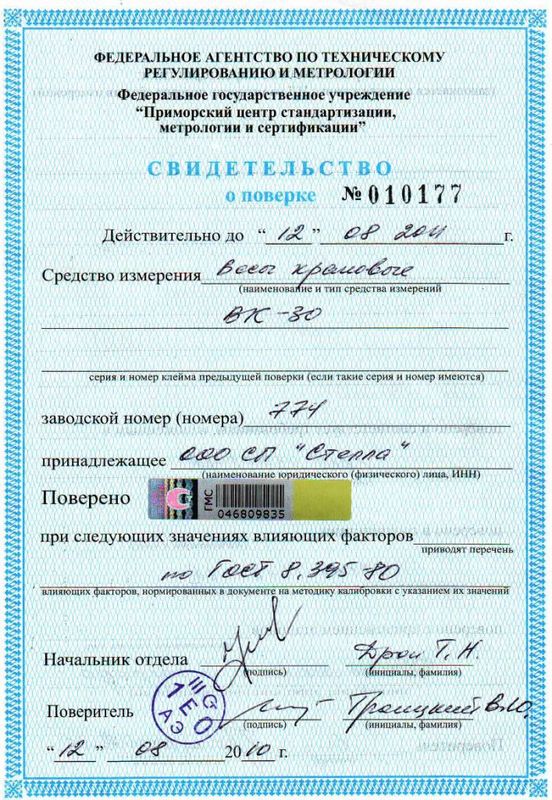 ФЕДЕРАЛЬНОЕ АГЕНТСТВО ПО ТЕХНИЧЕСКОМУ
РЕГУЛИРОВАНИЮ И МЕТРОЛОГИИ
Федеральное государственное учреждение
“Приморский центр стандартизации,
метрологии и сертификации”
СВИДЕТЕЛЬСТВО
о поверке № 010177
Действительно до “12” 08 2011 г.
Средство измерения Весы крановые
(наименование и тип средства измерений
ВК-30
серия и номер клейма предыдущей поверки (если такие серия и номер имеются)
заводской номер (номера) 774
принадлежащее ООО СП "Стелла"
(наименование юридического (физического) лица, ИНН)
Поверено ГМС 046809835
при следующих значениях влияющих факторов
приводят перечень
по ГОСТ 8.395-80
влияющих факторов, нормированных в документе на методику калибровки с указанием их значений
Начальник отдела Т.Н.
(подпись) (инициалы, фамилия)
Поверитель Троицкий В.Ю.
(подпись) (инициалы, фамилия)
“12” 08 2010 г.